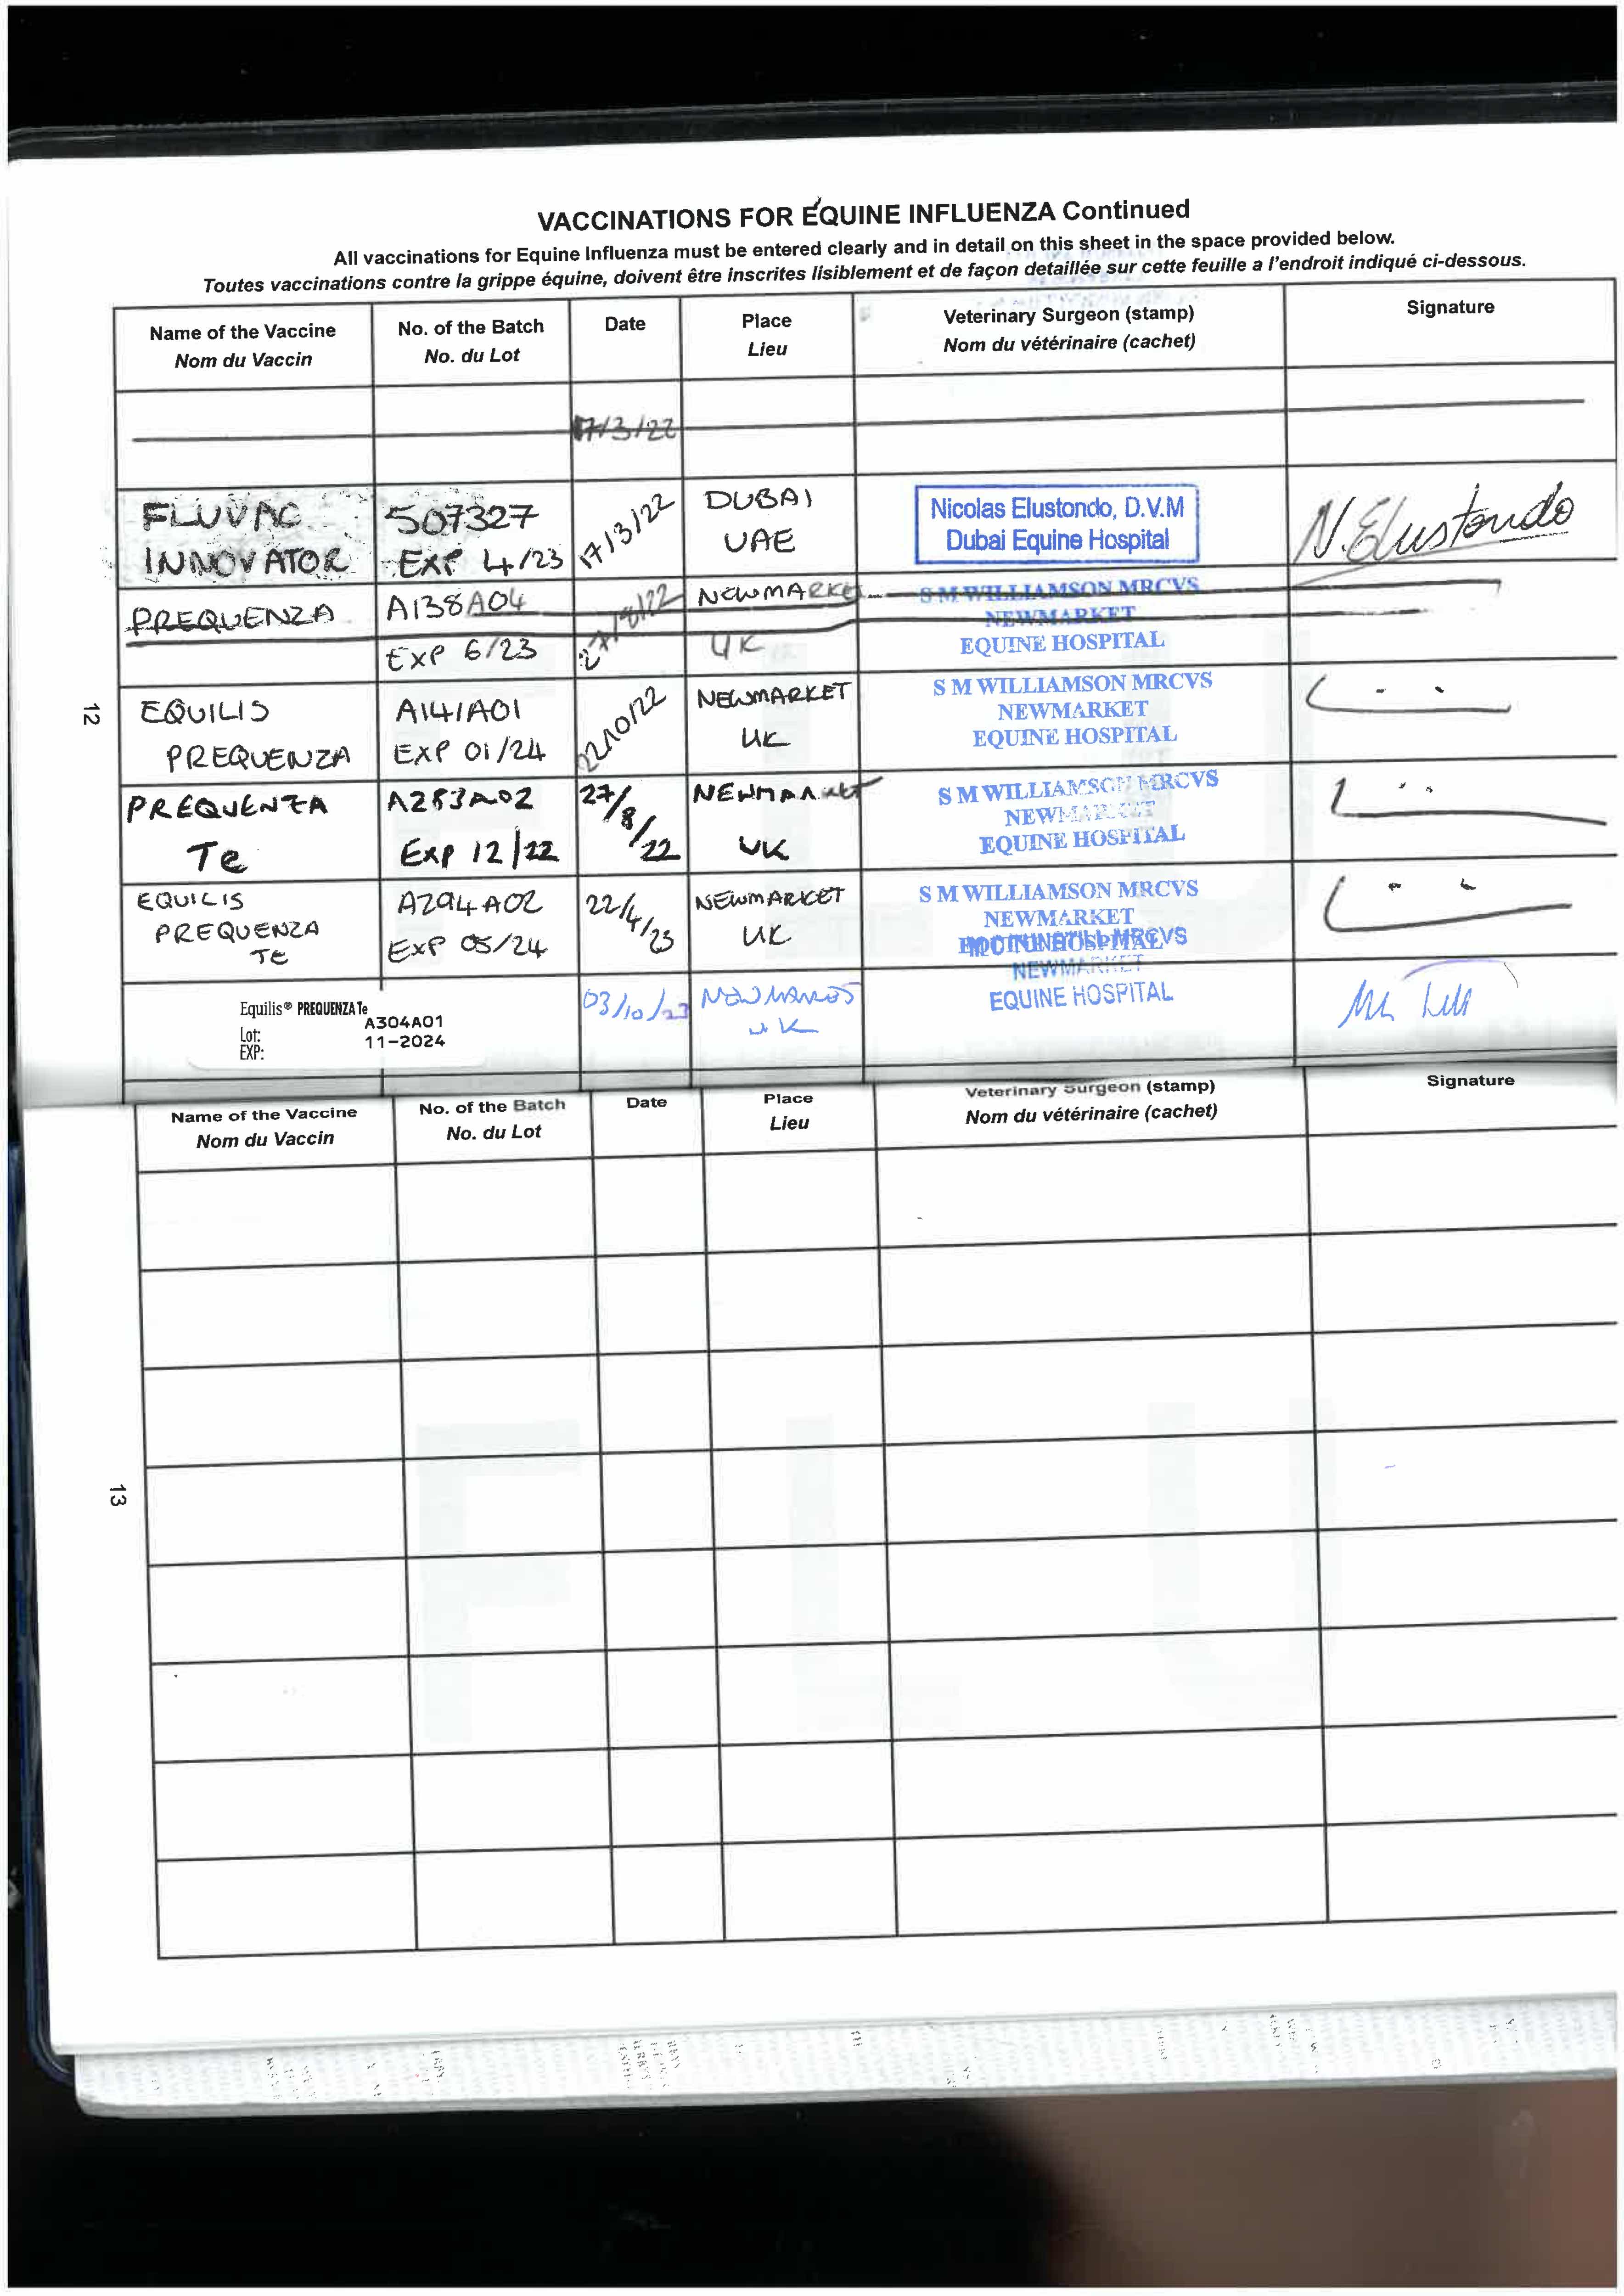 VACCINATIONS FOR EQUINE INFLUENZA Continued
All vaccinations for Equine Influenza must be entered clearly and in detail on this sheet in the space provided below.
Toutes vaccinations contre la grippe équine, doivent être inscrites lisiblement et de façon detaillée sur cette feuille a l'endroit indiqué ci-dessous.
Name of the Vaccine
Nom du Vaccin
No. of the Batch
No. du Lot
Date
Place
Lieu
Veterinary Surgeon (stamp)
Nom du vétérinaire (cachet)
Signature
17/3/22
FLUVAC
INNOVATOR
507327
EXP 4/23
17/3/22
DUBAI
UAE
Nicolas Elustondo, D.V.M
Dubai Equine Hospital
N. Elustondo
PREQUENZA
A138A04
EXP 6/23
27/8/22
NEWMARKET
UK
S M WILLIAMSON MRCVS
NEWMARKET
EQUINE HOSPITAL
12
EQUILIS
PREQUENZA
A141A01
EXP 01/24
22/10/22
NEWMARKET
UK
S M WILLIAMSON MRCVS
NEWMARKET
EQUINE HOSPITAL
PREQUENZA
Te
A283A02
Exp 12/22
27/8/22
NEWMARKET
UK
S M WILLIAMSON MRCVS
NEWMARKET
EQUINE HOSPITAL
EQUILIS
PREQUENZA
TE
A294A02
EXP 05/24
22/4/23
NEWMARKET
UK
S M WILLIAMSON MRCVS
NEWMARKET
EQUINE HOSPITAL
Equilis® PREQUENZA Te
Lot: A304A01
EXP: 11-2024
03/10/23
UK
MRCVS
NEWMARKET
EQUINE HOSPITAL
Name of the Vaccine
Nom du Vaccin
No. of the Batch
No. du Lot
Date
Place
Lieu
Veterinary Surgeon (stamp)
Nom du vétérinaire (cachet)
Signature
13
FLU